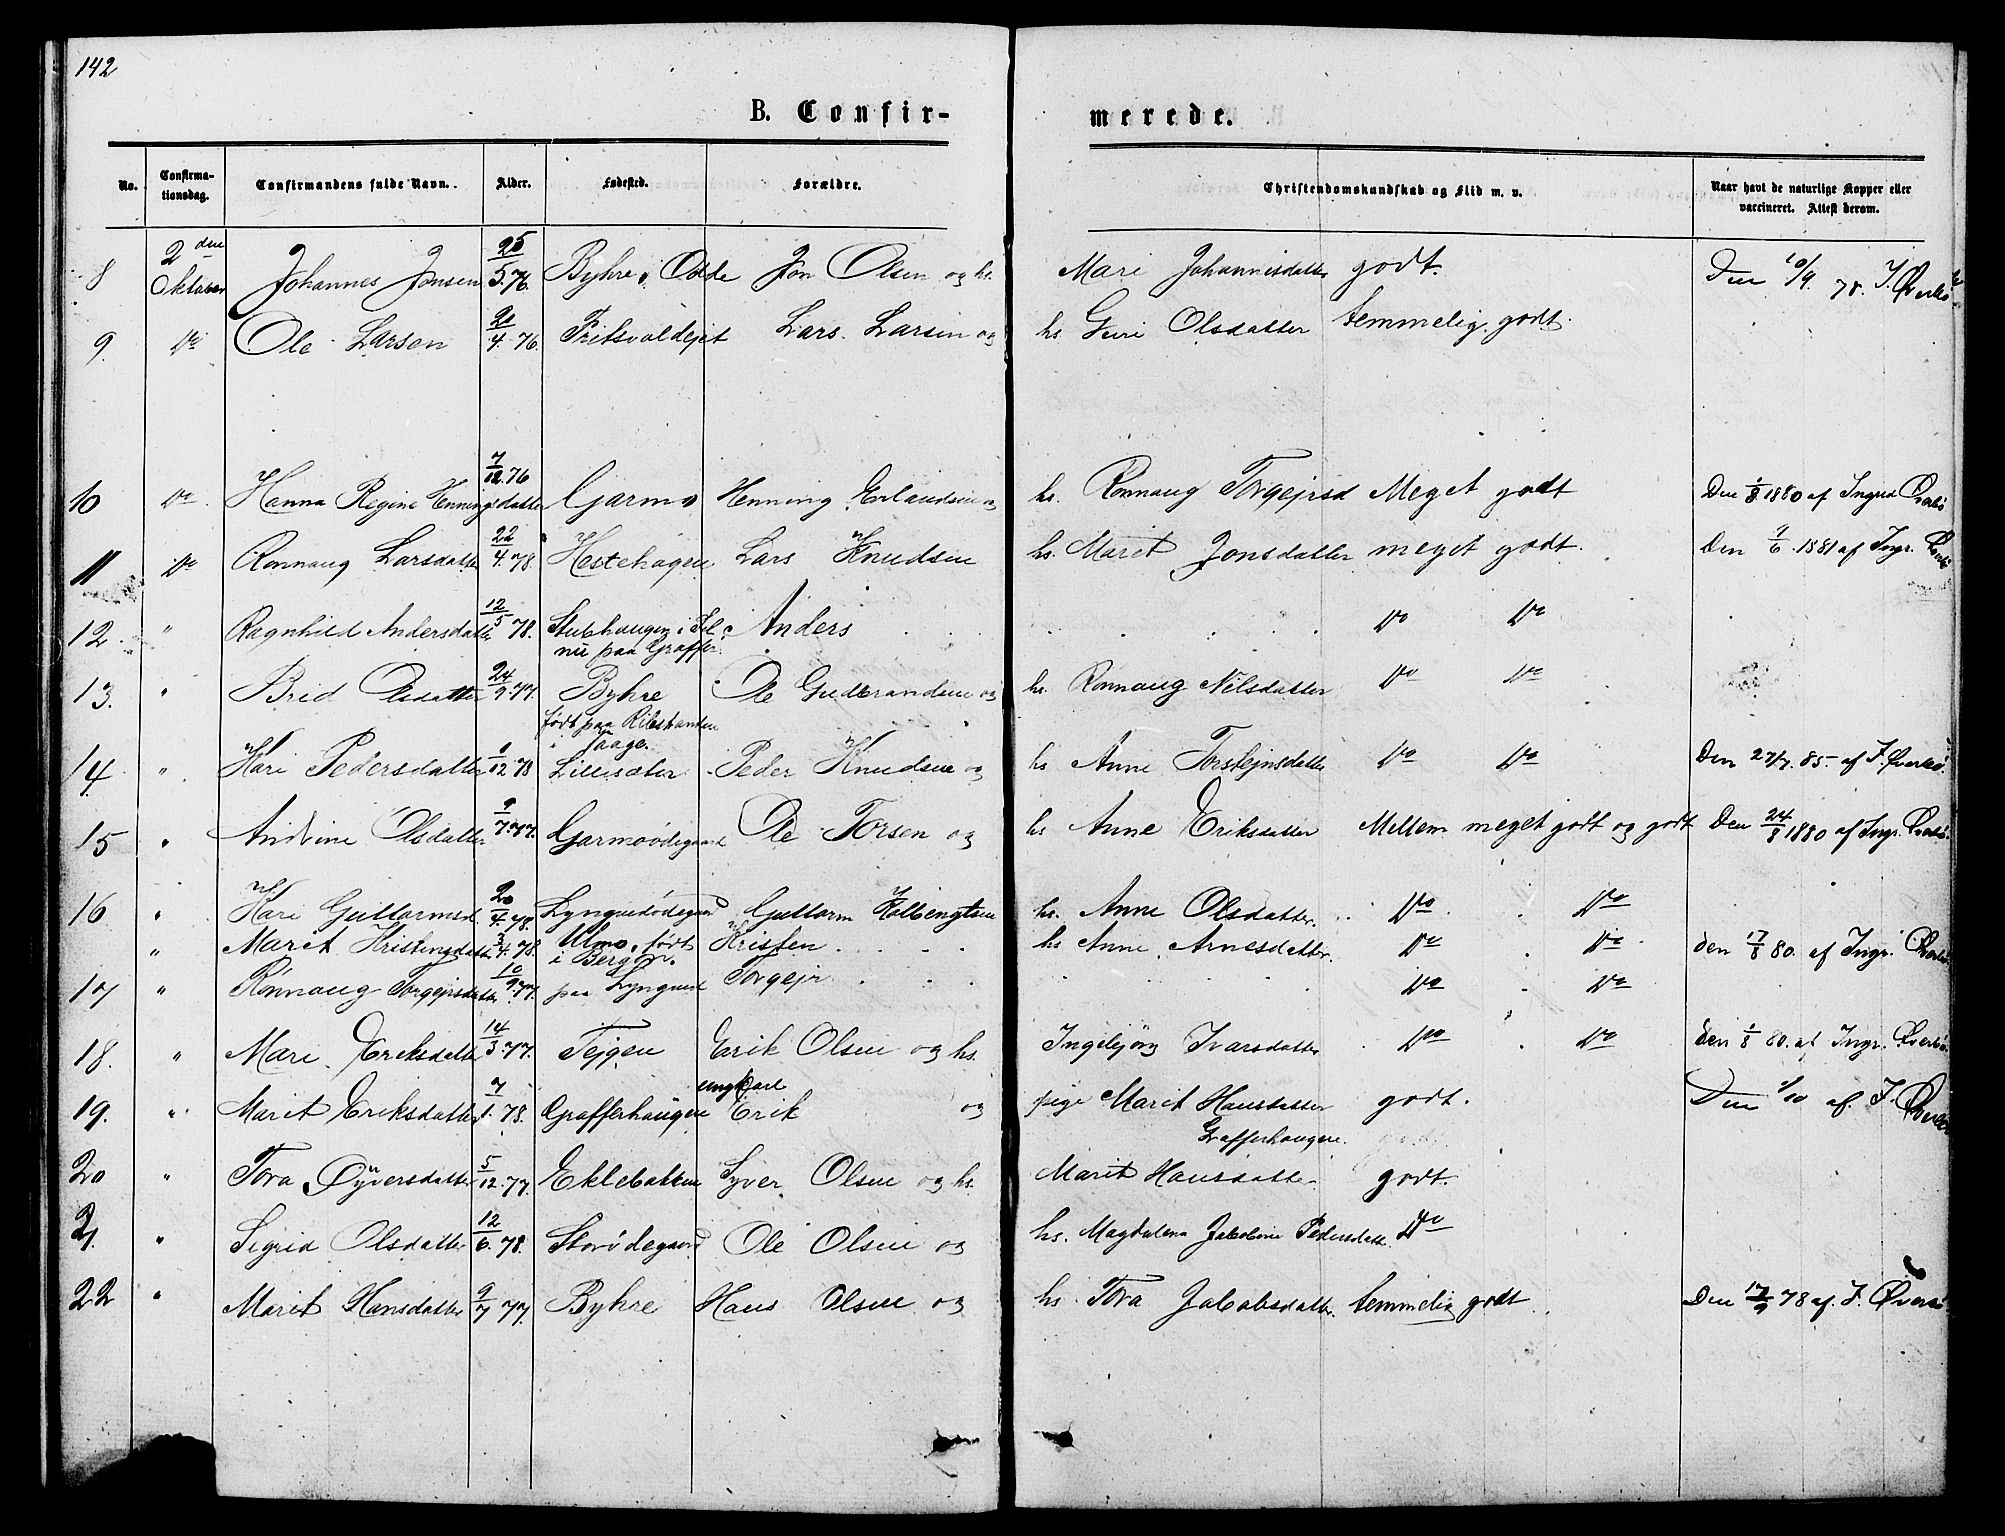 142
B. Confir-
merede.
No.
Confirma-
tionsdag.
Confirmandens fulde Navn.
Alder.
Fødested.
Forældre.
Christendomskundskab og Flid m. v.
Naar havt de naturlige Kopper eller
vaccineret. Attest derom.
8 2den Oktober Johannes Jonsen 25/5.76. Byhre Odde Jon Olsen og hs. Mari Johannisdatter godt. Den 10/9. 78. I.
9. Do Ole Larsen 20/4.76. Fritsvoldejet Lars Larsen og hs. Guri Olsdatter temmelig godt.
10 Do. Hanna Regine Henningsdatter 7/12.76 Garmo Henning Erlandsen og hs. Ronnaug Torgejrsd Meget godt Den 1/8 1880 af Ingrid
11 Do Ronnaug Larsdatter 22/4.78. Hestehagen Lars Knudsen hs. Marit Jonsdatter meget godt. Den 9/6. 1881 af Ingr.
12. " Ragnhild Andersdatter 12/5 78. Stubhaugen i Sel Anders Do Do
nu paa Graffer.
13. " Brid Olsdatter 24/9.77. Byhre Ole Gudbrandsen og hs. Ronnaug Nelsdatter Do Do
født paa
i Vaage.
14. " Kari Pedersdatter 12 78 Lillesæter Peder Knudsen og hs Anne Torstejnsdatter Do Do Den 27/7. 85. af I.
15 " Andrine Olsdatter 9/7.77. Garmoødegaard Ole Torsen og hs Anne Eriksdatter Mellem meget godt og godt Den 24/8 1880 af Ingr.
16 " Kari Guttormsd. 20/4.78. Lyngvedødegaard Guttorm Kolbengtsen hs. Anne Olsdatter. Do Do
" Marit Kristensdatter 3/4.78. Ulmo, født Kristen hs Anne Arnesdatter. Do Do den 17/8 80. af Ingr.
i Bergen.
17 " Rønnaug Torgejrsdatter 10/9.77. paa Lyngved Torgejr Do Do
18. " Mari Eriksdatter 14/3.77. Tejgen Erik Olsen og hs. Ingebjörg Ivarsdatter Do Do den 1/8 80. af Ingr.
ungkarl
19. " Marit Eriksdatter 7/1. 78. Grafferhaugen Erik og pige Marit Hansdatter godt. Den 1/10 af. I.
Grafferhaugen.
20 " Tora Syversdatter 5/12.77. Eklebakken Syver Olsen og hs. Marit Hansdatter godt.
21. " Sigrid Olsdatter 12/6. 78. Storødegaard Ole Olsen og hs. Magdalena Jakobine Pedersdatt. Do
22 " Marit Hansdatter 9/7 77. Byhre Hans Olsen og hs. Tora Jakobsdatter. temmelig godt. Den 17/9 78 af. I.